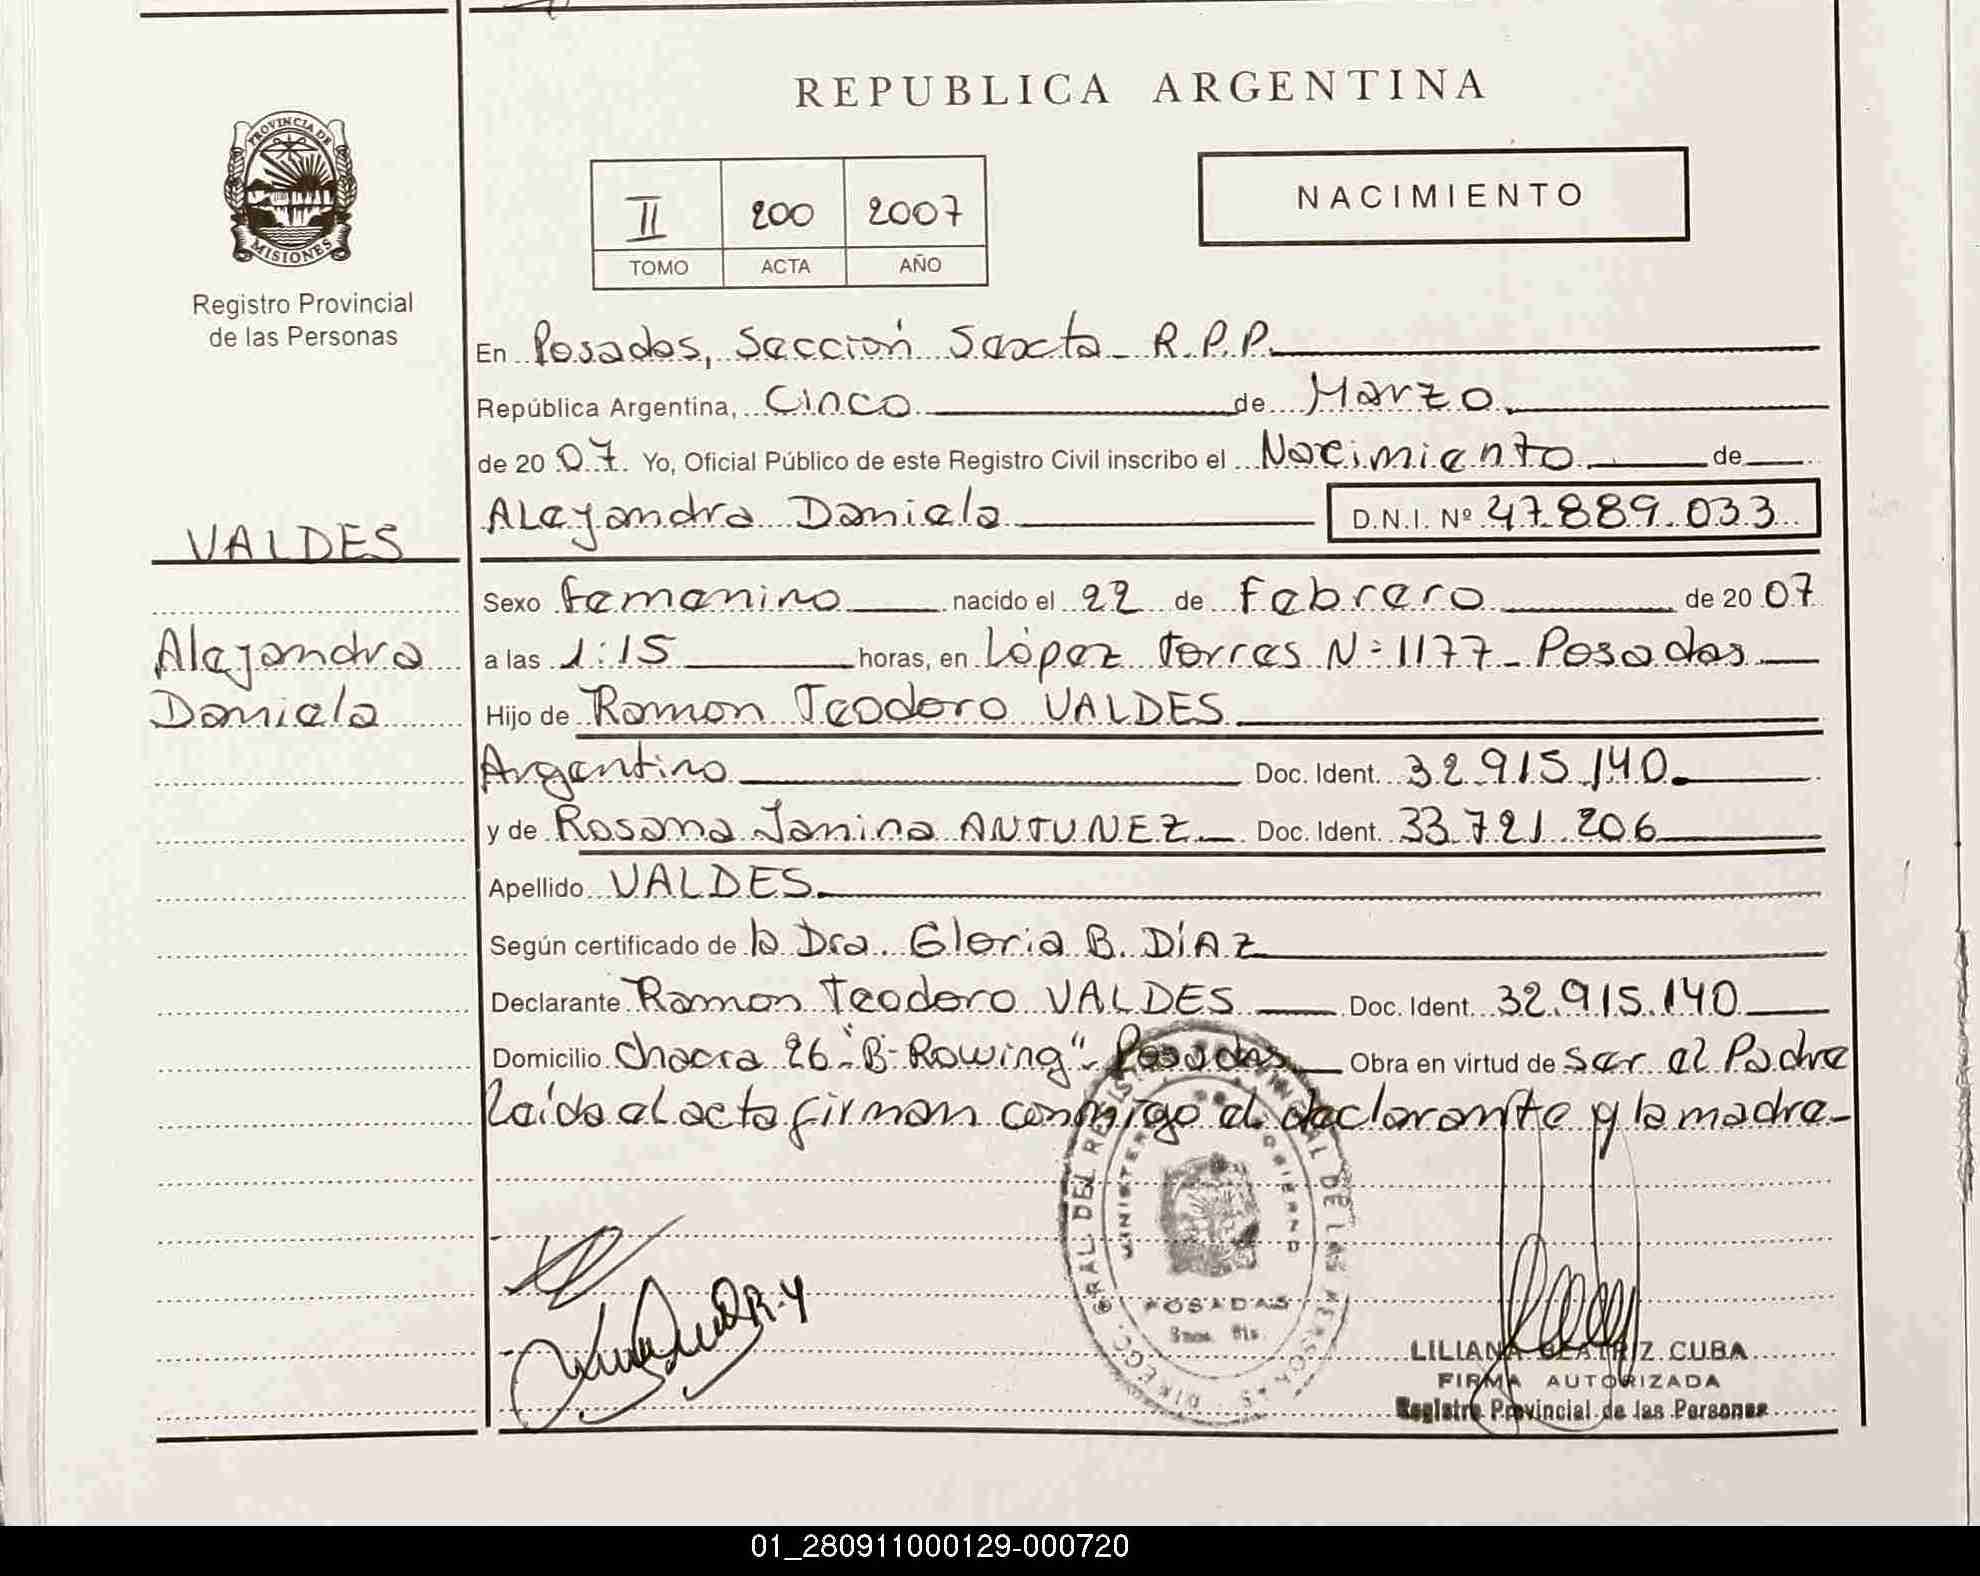 REPUBLICA ARGENTINA
PROVINCIA DE
MISIONES
Registro Provincial
de las Personas
II 200 2007
TOMO ACTA AÑO
NACIMIENTO
En Posadas, Sección Sexta R.P.P.
República Argentina, Cinco de Marzo
de 20 07. Yo, Oficial Público de este Registro Civil inscribo el Nacimiento de
Alejandra Daniela D.N.I. Nº 47.889.033
VALDES
Alejandra
Daniela
Sexo femenino nacido el 22 de Febrero de 20 07
a las 1:15 horas, en López Torres Nº 1177 - Posadas
Hijo de Ramon Teodoro VALDES
Argentino Doc. Ident. 32.915.140
y de Rosana Janina ANTUNEZ Doc. Ident. 33.721.206
Apellido VALDES
Según certificado de la Dra. Gloria B. DÍAZ
Declarante Ramon Teodoro VALDES Doc. Ident. 32.915.140
Domicilio Chacra 26 - "B- Rowing" - Posadas Obra en virtud de ser el Padre
Leída el acta firman conmigo el declarante y la madre-
POSADAS
LILIANA BEATRIZ CUBA
FIRMA AUTORIZADA
Registro Provincial de las Personas
01_280911000129-000720